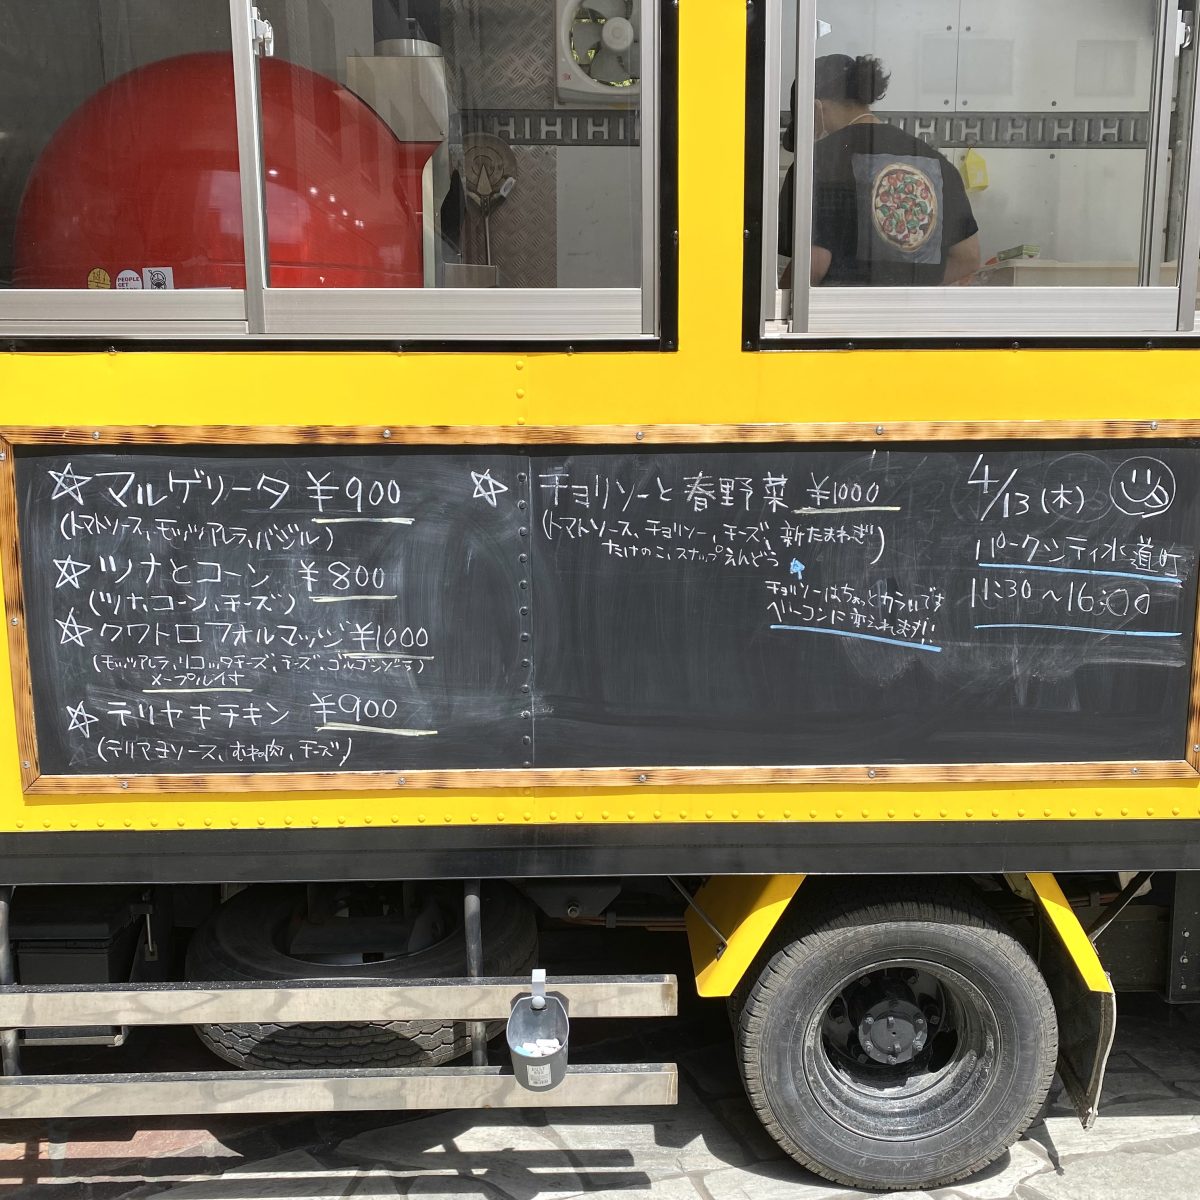 ☆マルゲリータ ¥900
(トマトソース、モッツアレラ、バジル)
☆ツナとコーン ¥800
(ツナ、コーン、チーズ)
☆クワトロフォルマッジ ¥1000
(モッツアレラ、リコッタチーズ、チーズ、ゴルゴンゾーラ)
メープル付
☆テリヤキチキン ¥900
(テリマヨソース、むね肉、チーズ)
☆チョリソーと春野菜 ¥1000
(トマトソース、チョリソー、チーズ、新たまねぎ)
たけのこ、スナップえんどう
チョリソーはちょっとカラいです
ベーコンに変えれます!!
4/13(木)
パークシティ水道町
11:30～16:00
PEOPLE
GET